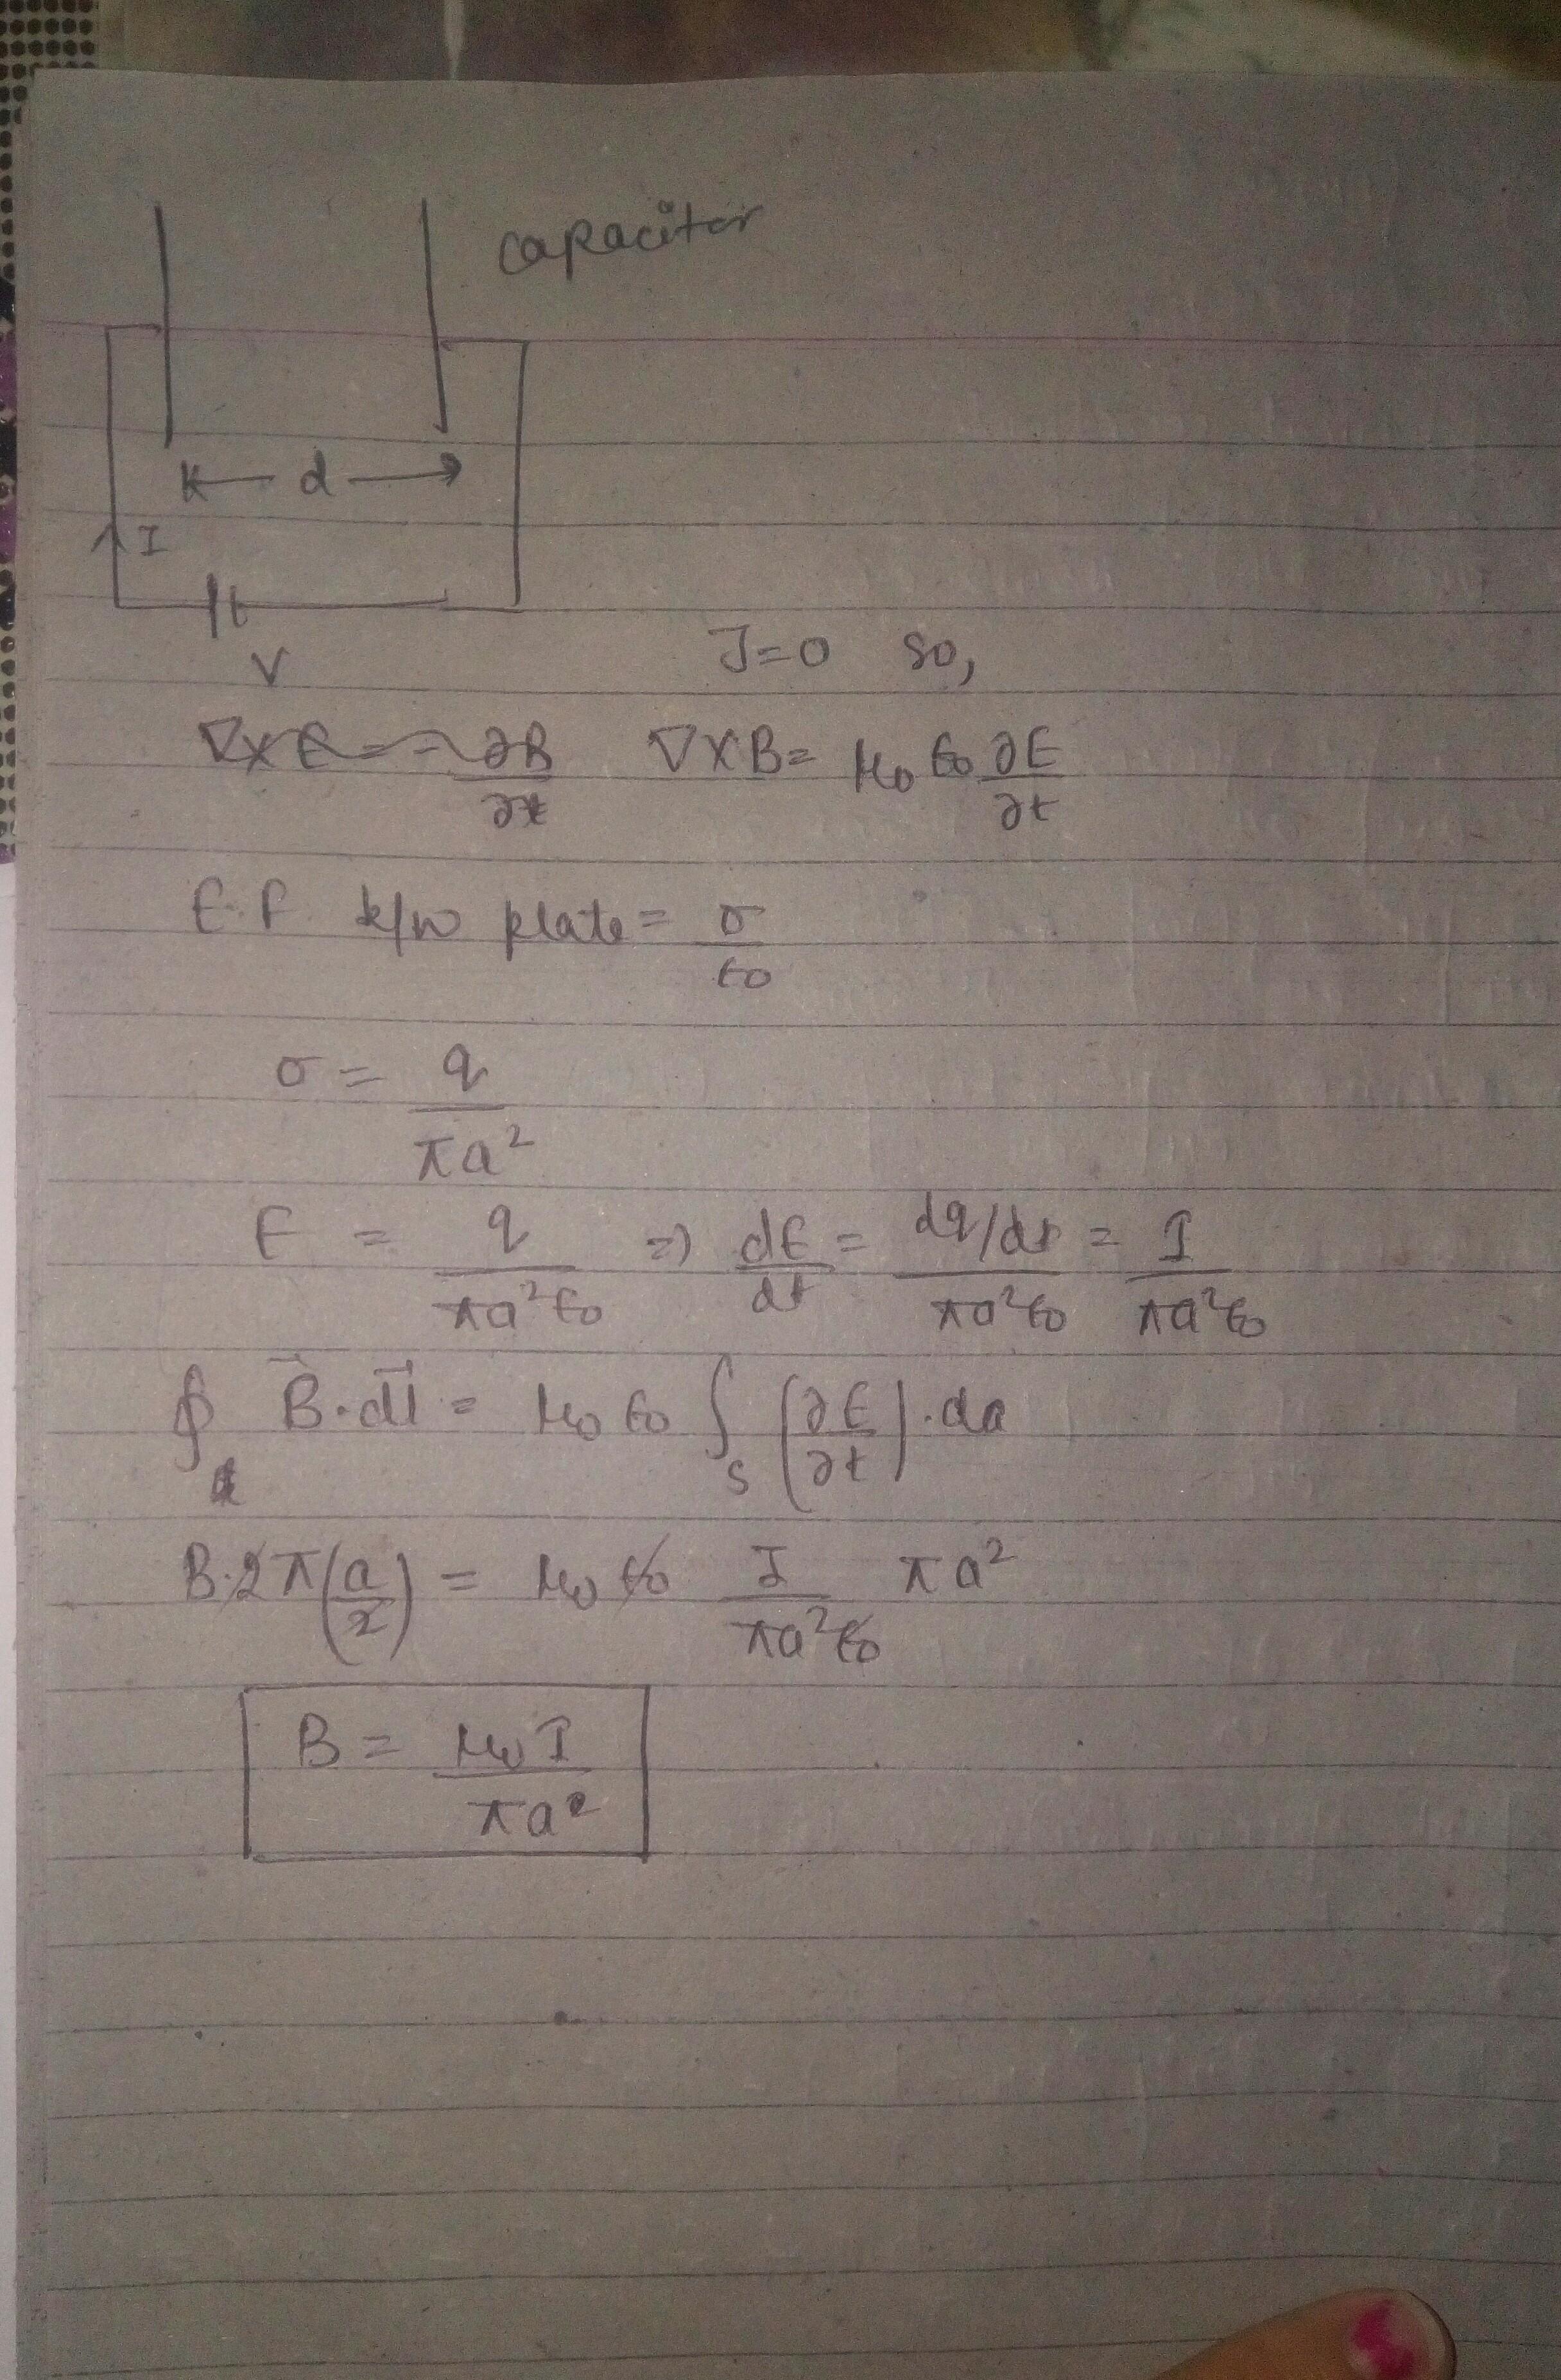 capacitor
d
I
V
J=0 so,
∇×E = -∂B/∂t ∇×B = μ₀ ε₀ ∂E/∂t
E.F b/w plate = σ/ε₀
σ = q/πa²
E = q/πa²ε₀ ⇒ dE/dt = dq/dt/πa²ε₀ = I/πa²ε₀
∮ B⃗·dl⃗ = μ₀ ε₀ ∫ₛ (∂E/∂t)·da
B·2π(a/2) = μ₀ ε₀ I/πa²ε₀ πa²
B = μ₀I/πa²